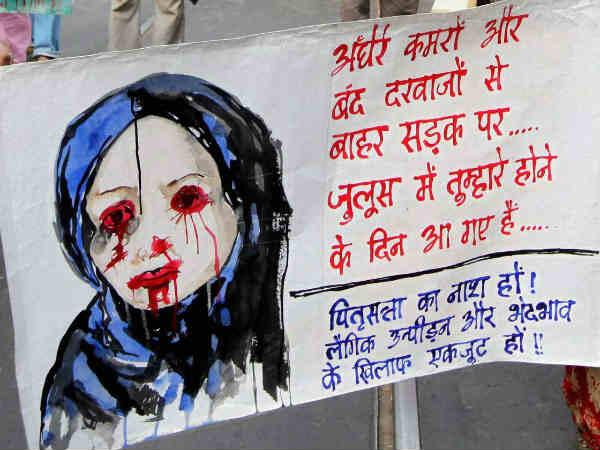 अँधेरे कमरों और
बंद दरवाजों से
बाहर सड़क पर.....
जुलूस में तुम्हारे होने
के दिन आ गए हैं.....
पितृसत्ता का नाश हों!
लैंगिक उत्पीड़न और भेदभाव
के खिलाफ एकजूट हों!!